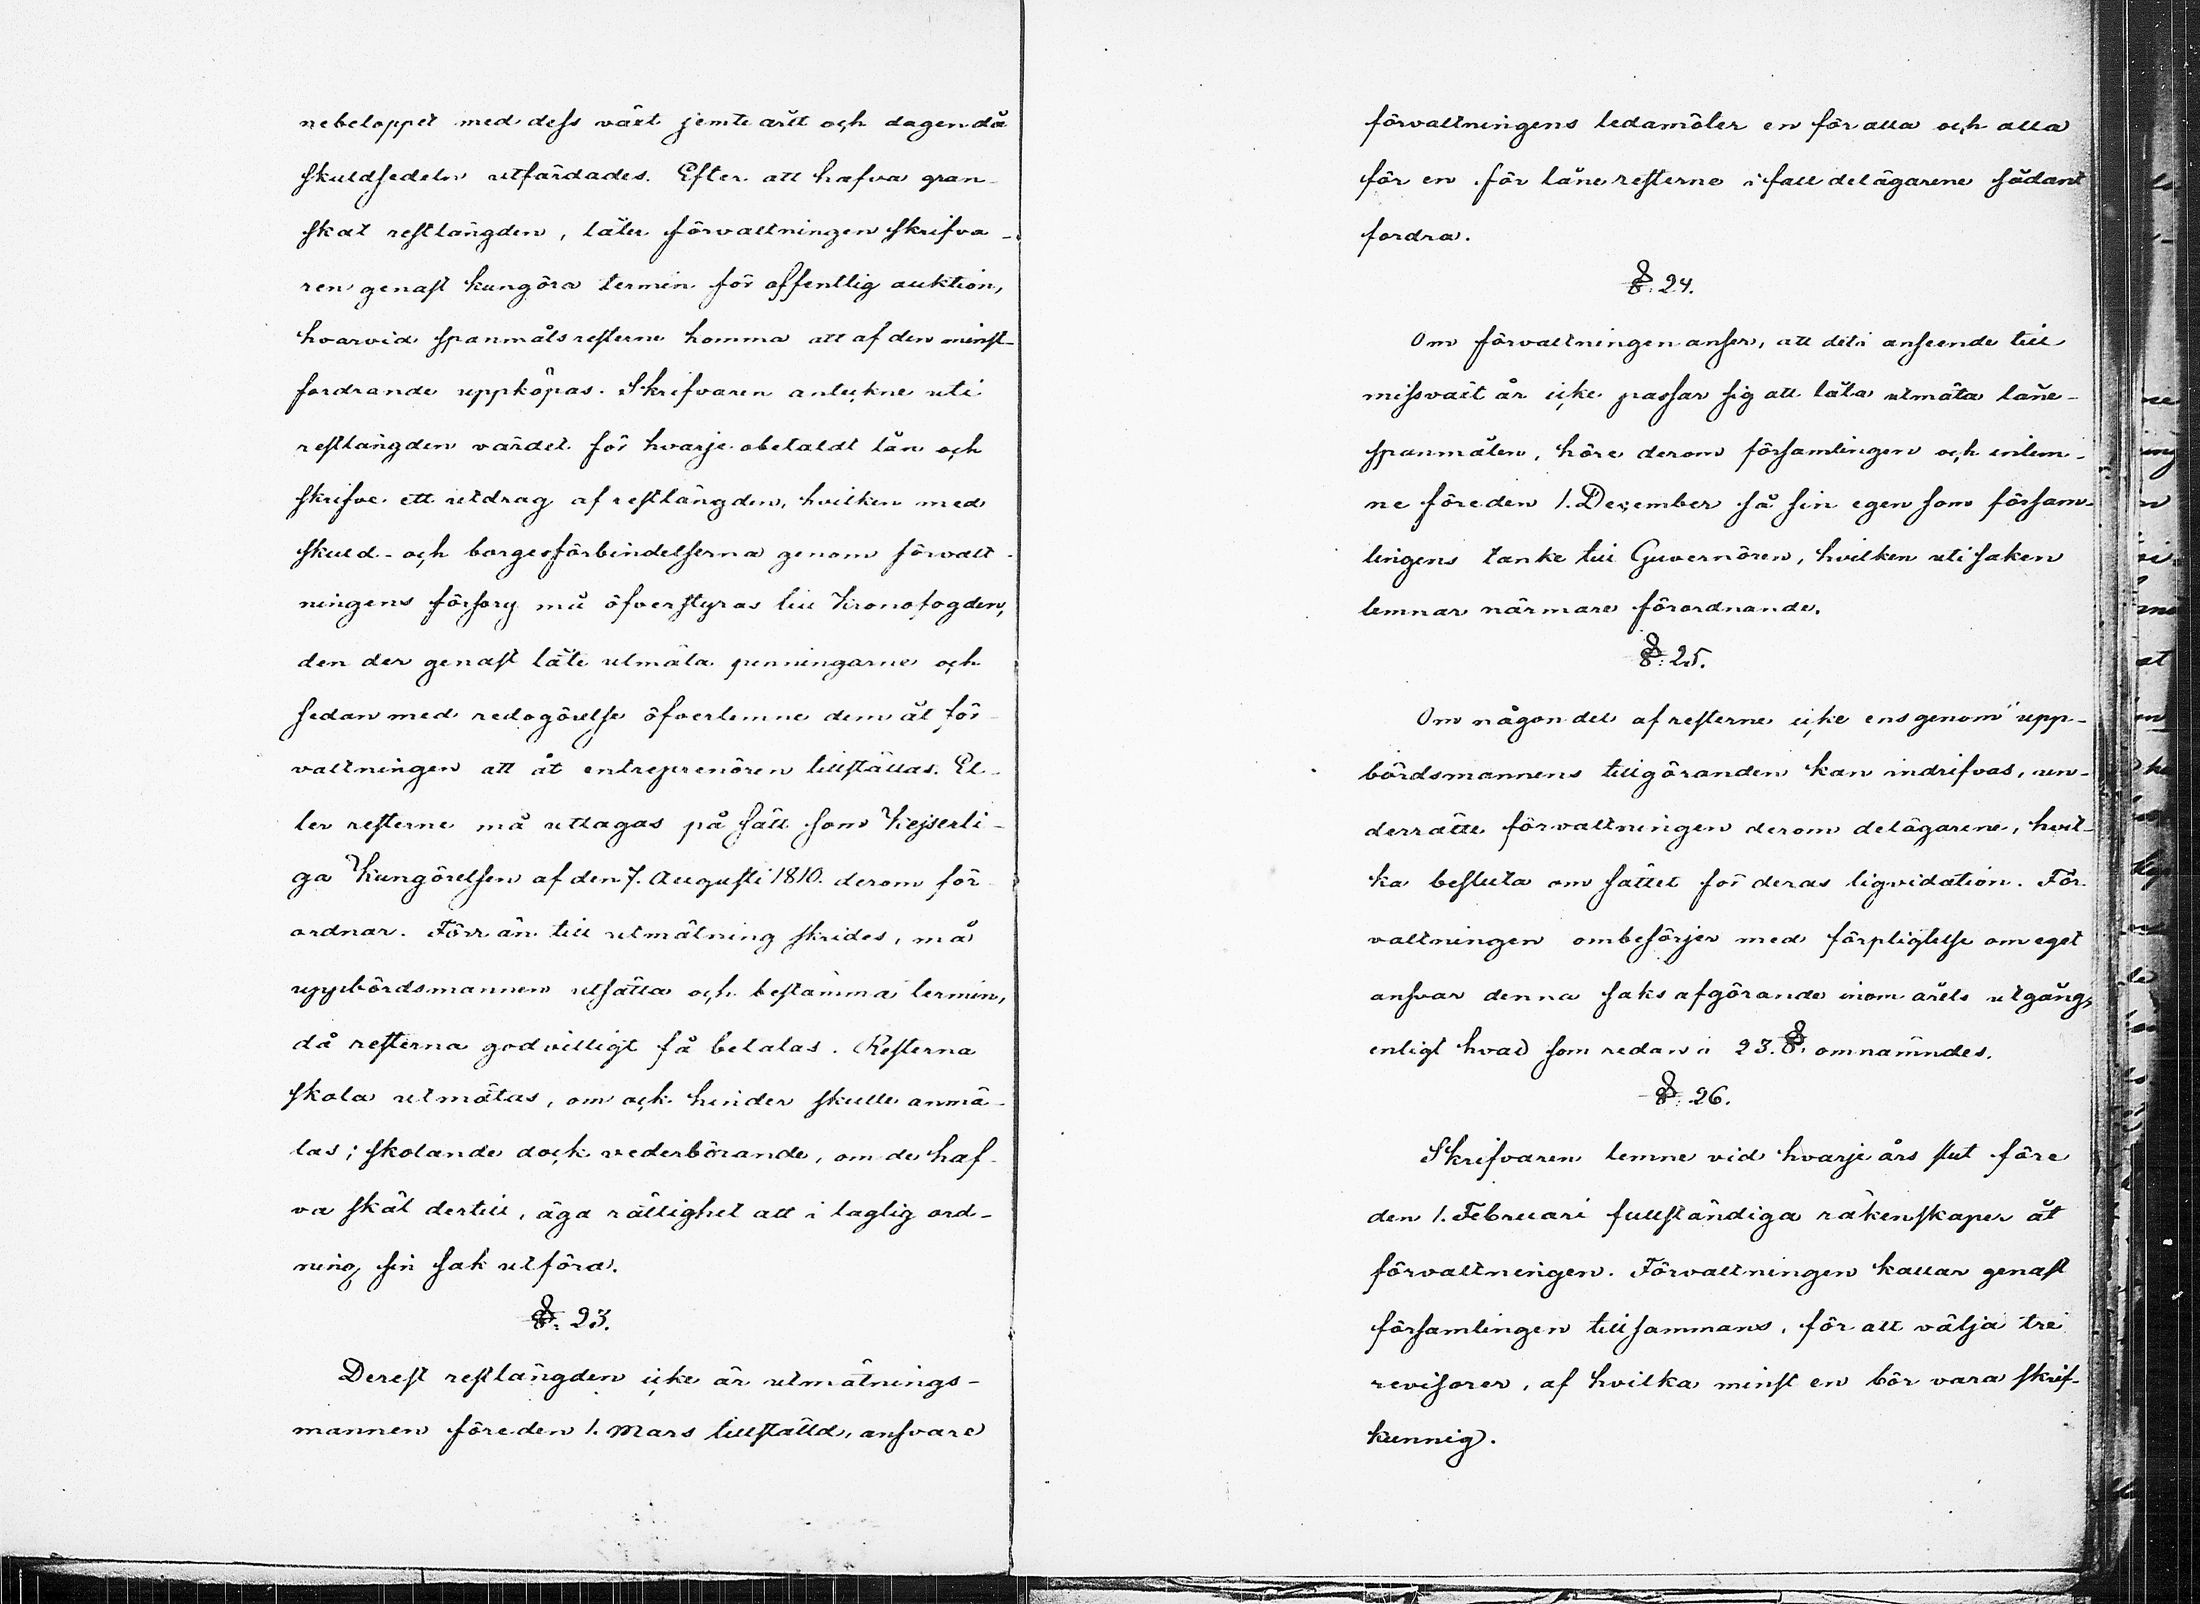 nebeloppet med dess växt jemte året och dagen då
skuldsedeln utfärdades. Efter att hafva gran-
skat restlängden, låter förvaltningen skrifva-
ren genast kungöra termin för offentlig auktion,
hvarvid spanmålsresterne komma att af den minst-
fordrande uppköpas. Skrifvaren anteckne uti
restlängden värdet för hvarje obetaldt lån och
skrifve ett utdrag af restlängden, hvilken med
skuld- och borgesförbindelserna genom förvalt-
ningens försorg må öfverstyras till Kronofogden,
den der genast låte utmäta penningarne och
sedan med redogörelse öfverlemne dem åt för-
valtningen att åt entreprenören tillställas. El-
ler resterne må uttagas på sätt som Kejserli-
ga Kungörelsen af den 7. Augusti 1810. derom för-
ordnar. Förr än till utmätning skrides, må
uppbördsmannen utsätta och bestämma termin,
då resterna godvilligt få betalas. Resterna
skola utmätas, om ock hinder skulle anmä-
las; skolande dock vederbörande, om de haf-
va skäl dertill, äga rättighet att i laglig ord-
ning sin sak utföra.
§. 23.
Derest restlängden icke är utmätnings-
mannen före den 1. Mars tillställd, ansvare
förvaltningens ledamöter en för alla och alla
för en för låneresterne i fall delägarene sådant
fordra.
§. 24.
Om förvaltningen anser, att det i anseende till
missväxt år icke passar sig att låta utmäta låne-
spanmålen, höre derom församlingen och inlem-
ne före den 1. December så sin egen som försam-
lingens tanke till Guvernören, hvilken uti saken
lemnar närmare förordnande.
§. 25.
Om någon del af resterne icke ens genom upp-
bördsmannens tillgöranden kan indrifvas, un-
derrätte förvaltningen derom delägarene, hvil-
ka besluta om sättet för deras liqvidation. För-
valtningen ombesörjer med förpligtelse om eget
ansvar denna saks afgörande inom årets utgång,
enligt hvad som redan i 23. §. omnämndes.
§. 26.
Skrifvaren lemne vid hvarje års slut före
den 1. Februari fullständiga räkenskaper åt
förvaltningen. Förvaltningen kallar genast
församlingen tillsammans, för att välja tre
revisorer, af hvilka minst en bör vara skrif-
kunnig.